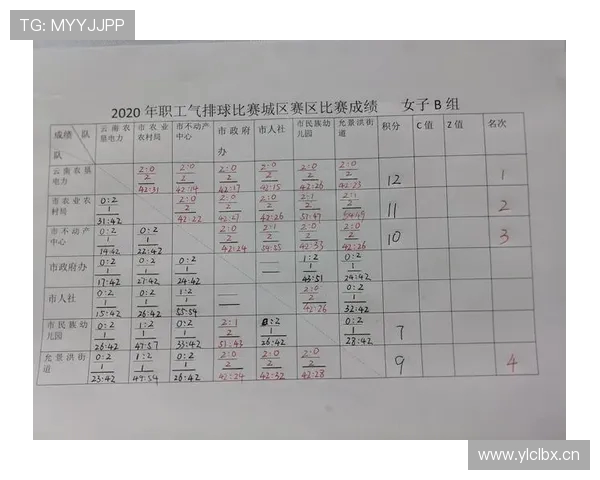 TG: MYYJJPP
2020 年职工气排球比赛城区赛区比赛成绩 女子 B 组
成绩 队 云南农垦电力 市农业农村局 市不动产中心 市政府办 市人社 市民族幼儿园 允景洪街道 积分 C 值 Z 值 名次
队
云南农垦电力 2:0 2 42:31 2:0 2 42:14 2:0 2 42:17 2:0 2 42:15 2:0 2 42:26 2:0 2 42:23 12 1
市农业农村局 0:2 1 31:42 2:0 2 42:22 2:0 2 42:27 2:0 2 42:26 2:1 2 51:47 2:1 2 54:49 11 2
市不动产中心 0:2 1 14:42 0:2 1 22:42 2:0 2 42:24 2:1 2 2:0 2 42:33 2:0 2 42:26 10 3
市政府办 0:2 1 17:42 0:2 1 27:42 0:2 1 24:42 — 1:2 1 43:51 0:2 1 24:42
市人社 0:2 1 15:42 0:2 1 26:42 1:2 1 55:54 — 2:0 2 42:26 0:2 1 32:42
市民族幼儿园 0:2 1 26:42 1:2 1 47:51 0:2 1 33:42 2:1 2 51:43 0:2 1 26:42 0:2 1 28:42 7
允景洪街道 0:2 1 23:42 1:2 1 49:54 0:2 1 26:42 2:0 2 42:24 2:0 2 42:32 2:0 2 42:28 9 4
www.ylclbx.cn